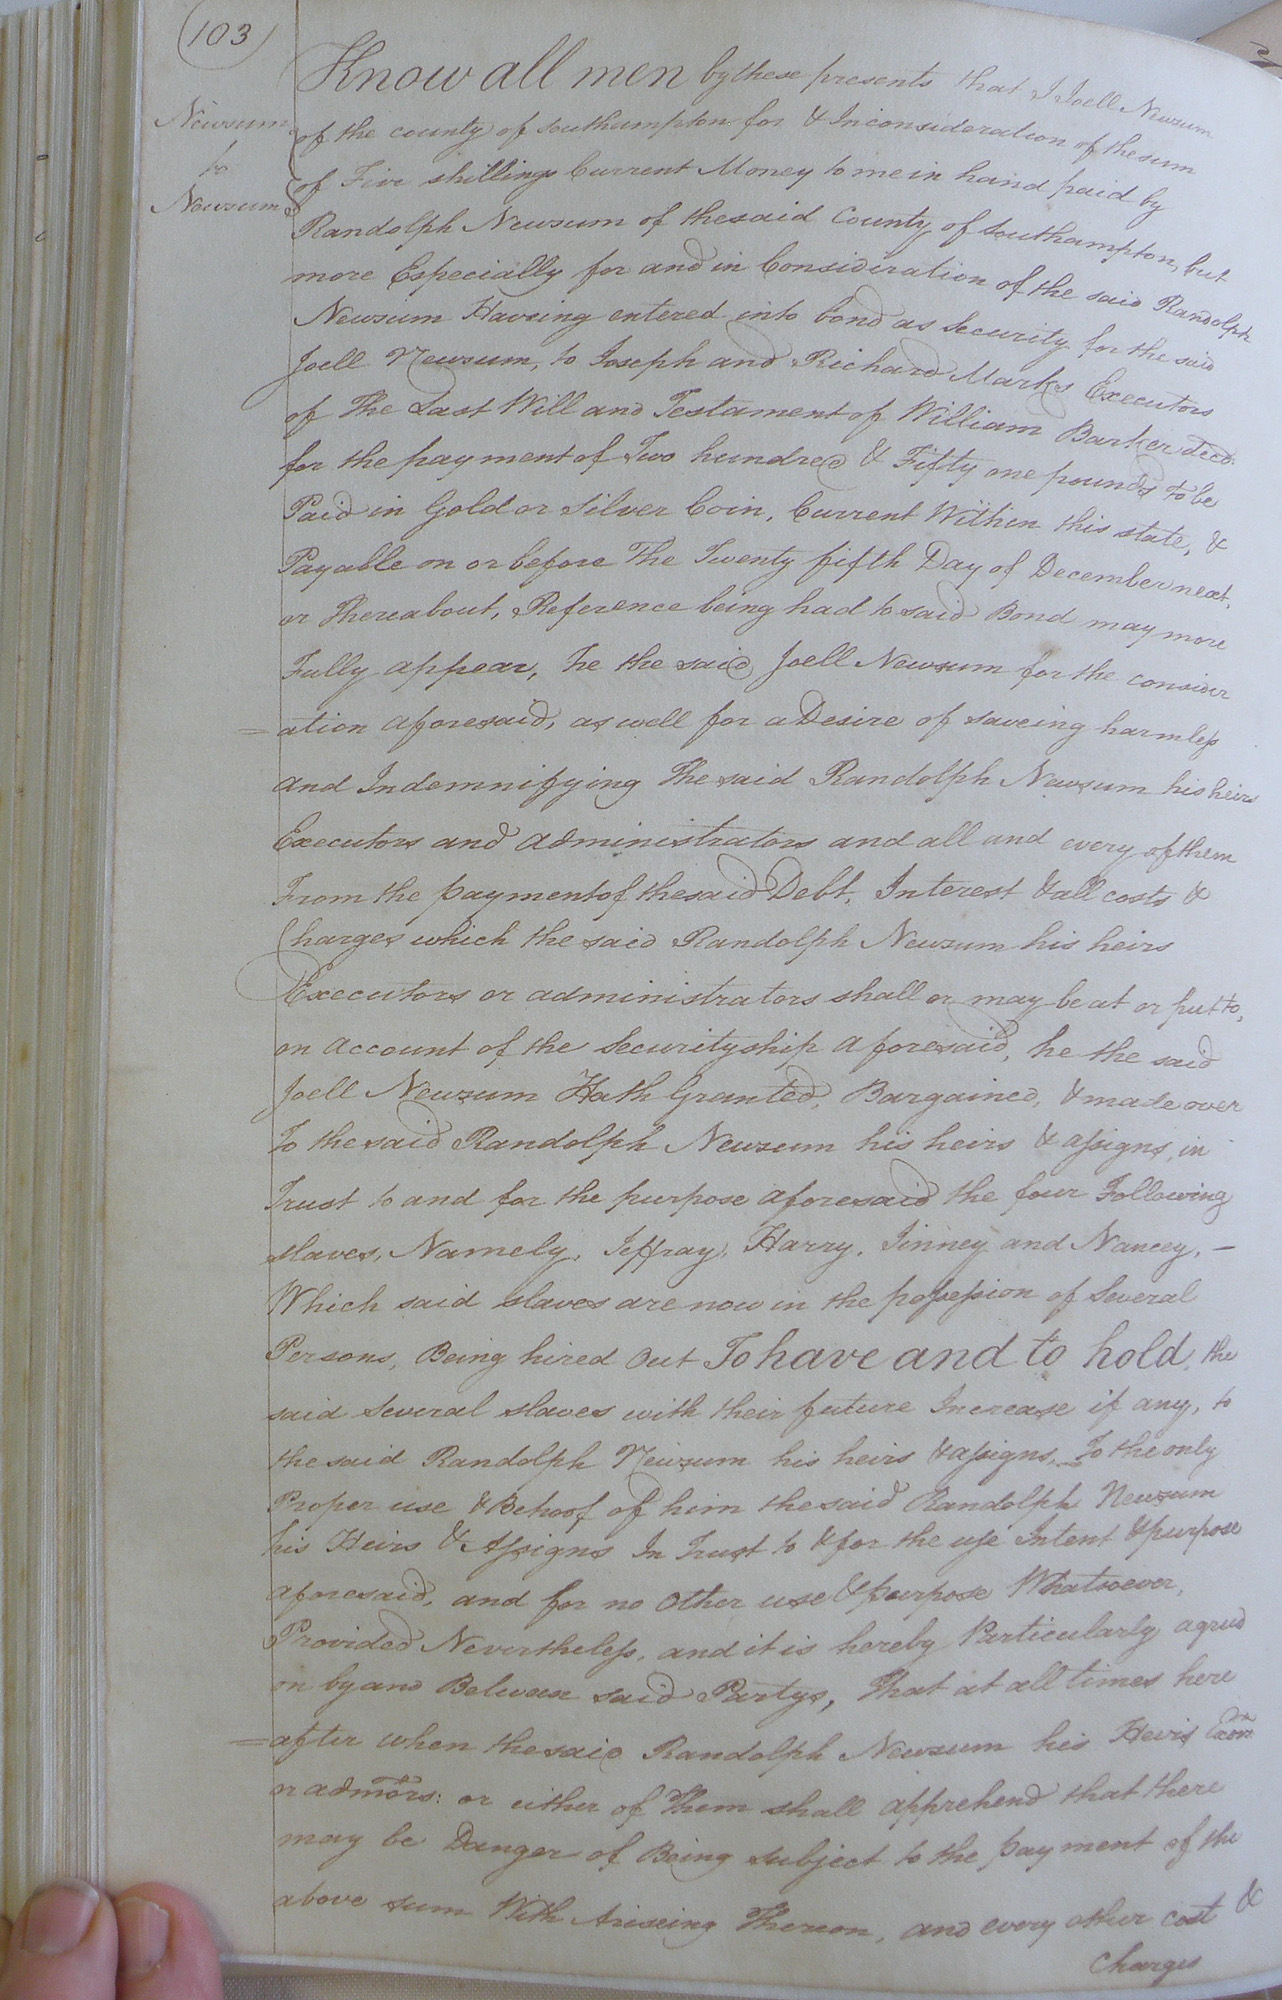 103
Newsum
to
Newsum
Know all men by these presents that I Joell Newsum
of the county of Southampton for & Inconsideration of the sum
of Five shillings Current Money to me in hand paid by
Randolph Newsum of the said County of Southampton, but
more Especially for and in Consideration of the said Randolph
Newsum Having entered into bond as Security for the said
Joell Newsum, to Joseph and Richard Marks Executors
of The Last Will and Testament of William Barker decd.
for the payment of Two hundred & Fifty one pounds to be
Paid in Gold or Silver Coin, Current Within this state, &
Payable on or before The Twenty fifth Day of December next,
or thereabout, Reference being had to said Bond may more
Fully appear, he the said Joell Newsum for the consider
=ation aforesaid, as well for a Desire of saveing harmless
and Indemnifying The said Randolph Newsum his heirs
Executors and administrators and all and every of them
From the payment of the said Debt, Interest & all costs &
Charges which the said Randolph Newsum his heirs
Executors or administrators shall or may be at or put to,
on account of the Securityship aforesaid, he the said
Joell Newsum Hath Granted, Bargained, & made over
To the said Randolph Newsum his heirs & assigns, in
Trust to and for the purpose aforesaid the four Following
slaves, Namely, Jeffray, Harry, Jinney and Nancey, –
Which said slaves are now in the possession of Several
Persons, Being hired Out To have and to hold, the
said Several slaves with their future Increase if any, to
the said Randolph Newsum his heirs & assigns, To the only
Proper use & Behoof of him the said Randolph Newsum
his Heirs & Assigns In Trust to & for the use Intent & purpose
aforesaid, and for no Other use & purpose Whatsoever,
Provided Nevertheless, and it is hereby Particularly agreed
on by and Between said Partys, That at all times here
=after when the said Randolph Newsum his Heirs Exors
or admors: or either of Them shall apprehend that there
may be Danger of Being subject to the payment of the
above sum With Ariseing Thereon, and every other cost &
Charges